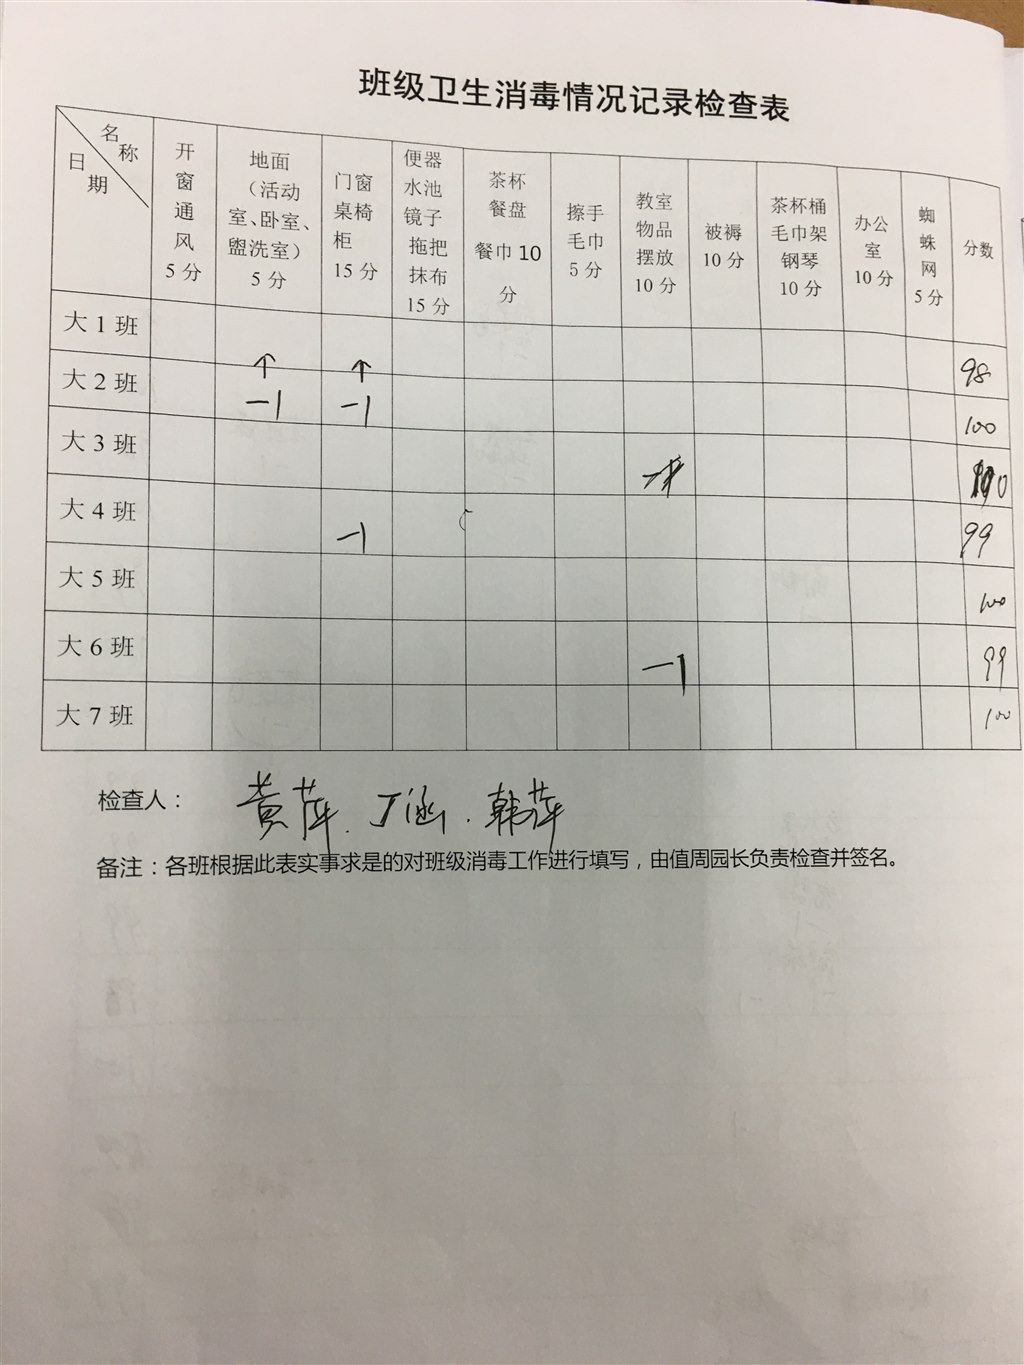 班级卫生消毒情况记录检查表
名称
日期
开窗通风5分
地面（活动室、卧室、盥洗室）5分
门窗桌椅柜15分
便器水池镜子拖把抹布15分
茶杯餐盘餐巾10分
擦手毛巾5分
教室物品摆放10分
被褥10分
茶杯桶毛巾架钢琴10分
办公室10分
蜘蛛网5分
分数
大1班 98
大2班 ↑ ↑ 100
-1 -1
大3班 100
大4班 -1 99
大5班 100
大6班 -1 99
大7班 100
检查人： 黄萍.丁涵.韩萍
备注：各班根据此表实事求是的对班级消毒工作进行填写，由值周园长负责检查并签名。